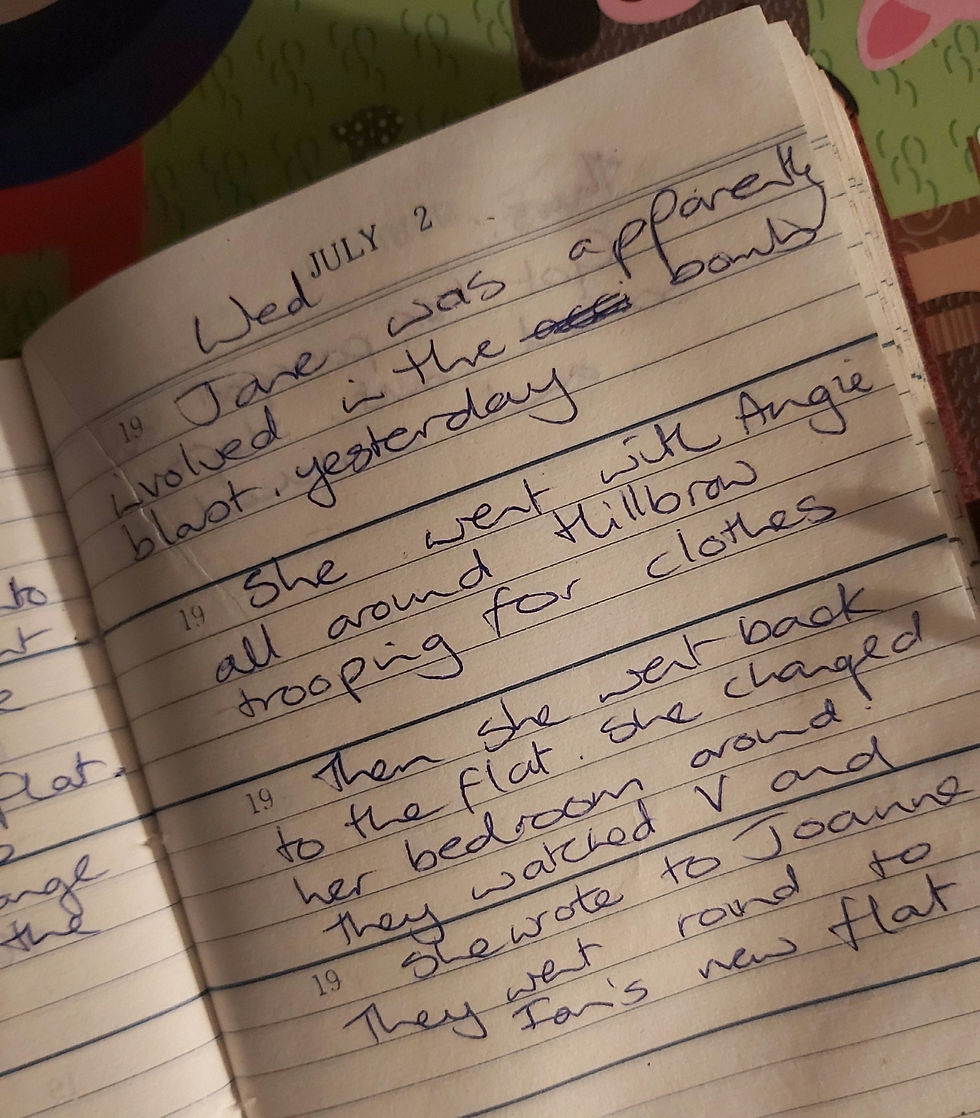 to
flat.
ange
the
JULY 2
Wed
Jane was apparently
19
ivolved in the bomb
blast. yesterday
She went with Angie
19
all around Hillbrow
trooping for clothes
Then she went back
19
to the flat. She changed
her bedroom around.
they watched V and
she wrote to Joanne
19
They went round to
Ian's new flat